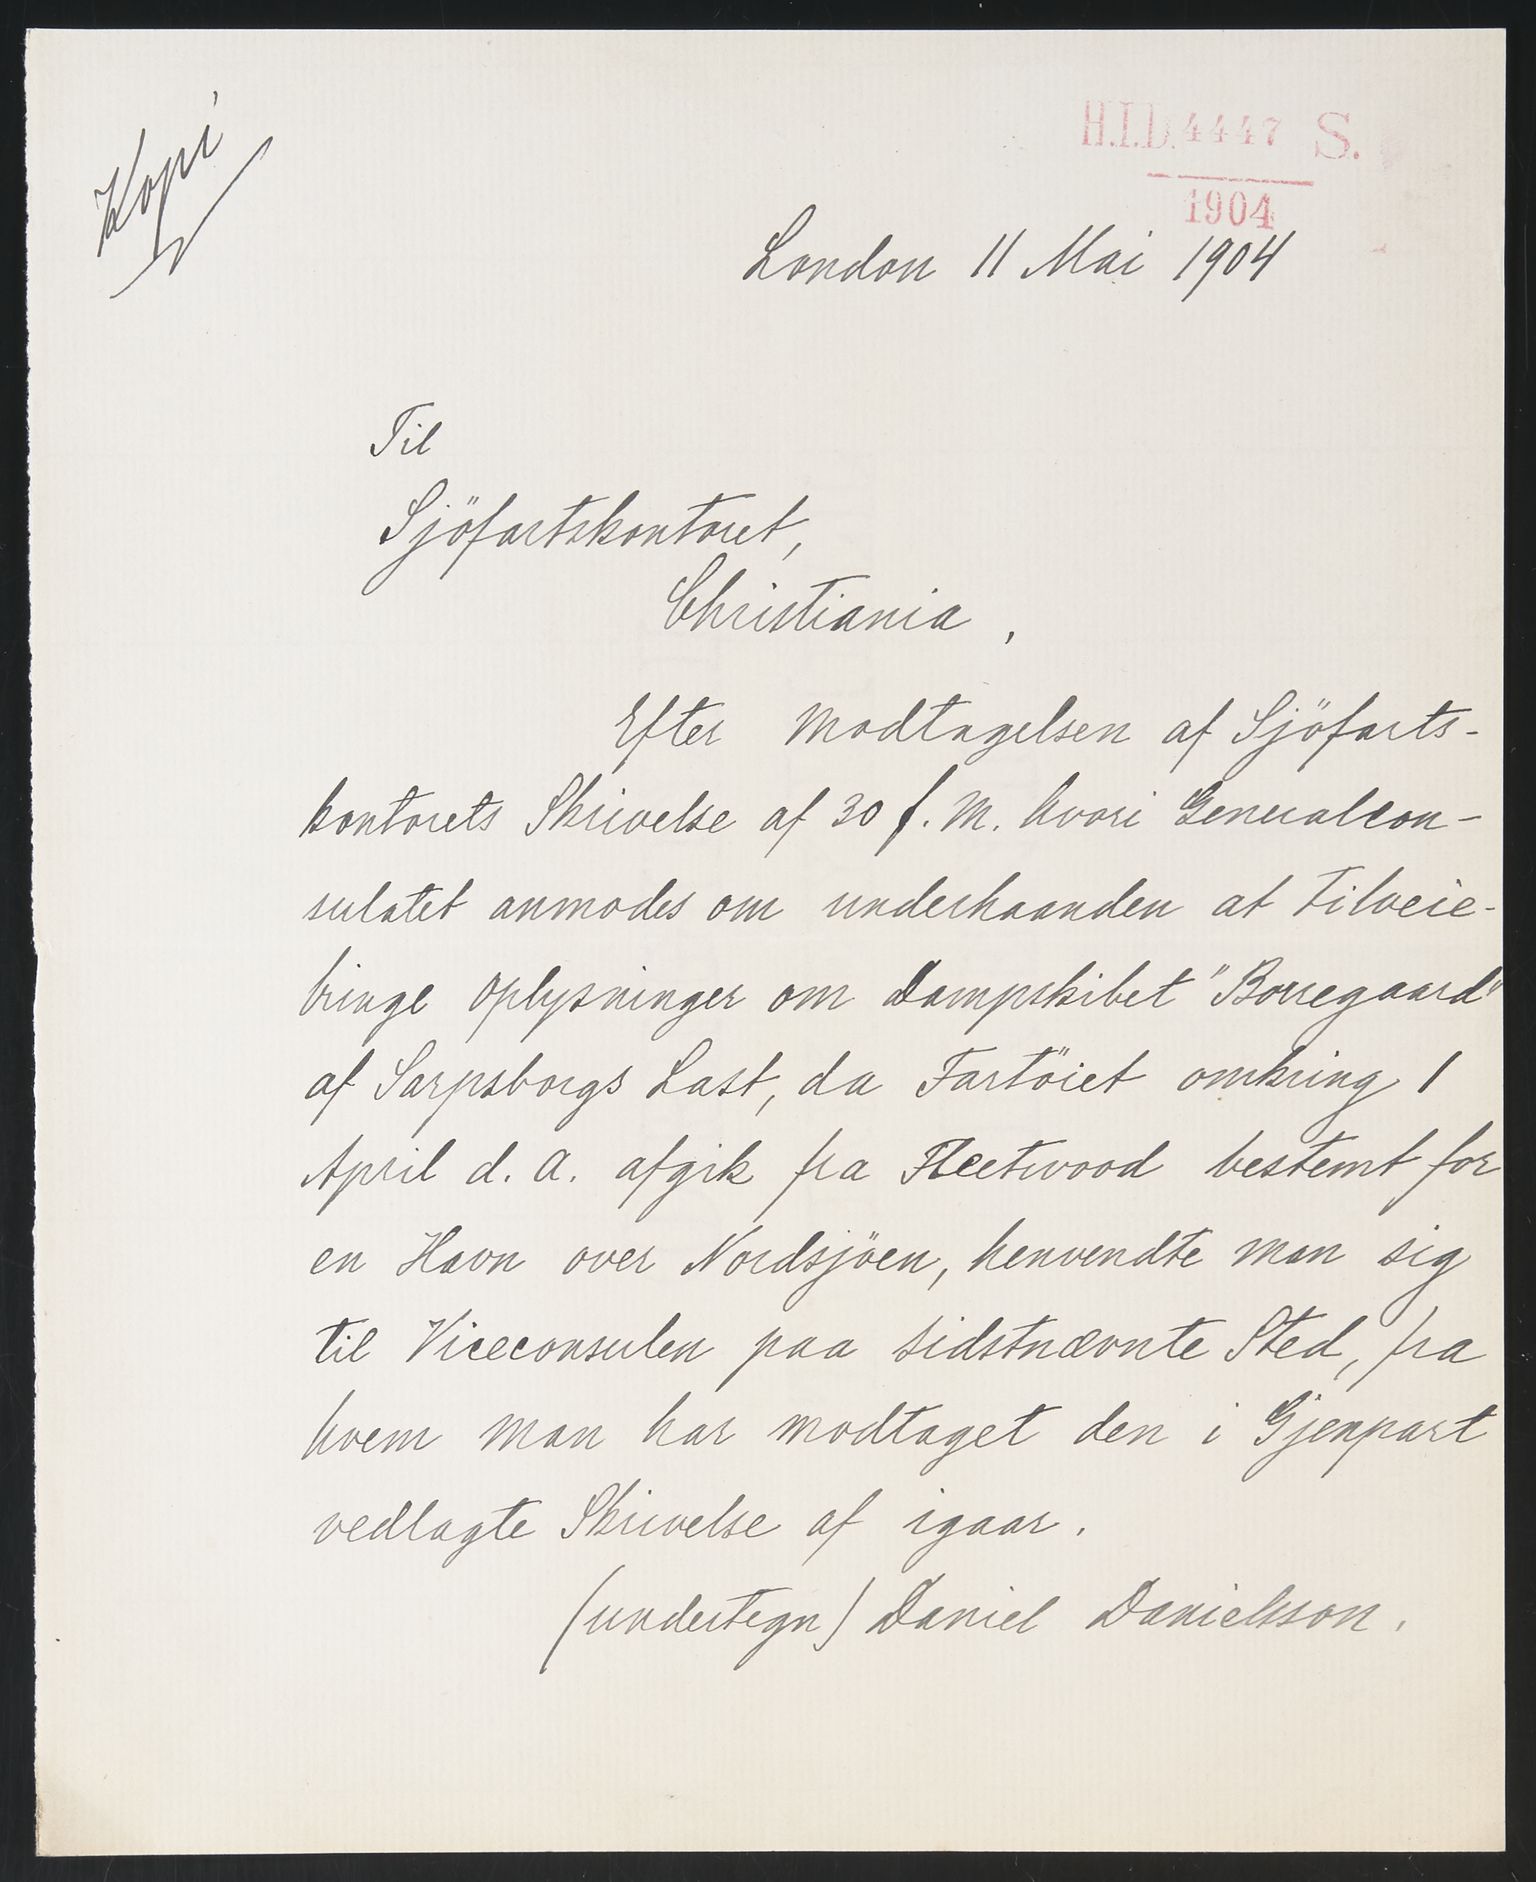 Kopi
H.I.D. 4447 S.
1904
London 11 Mai 1904
Til
Sjöfartskontoret,
Christiania,
Efter Modtagelsen af Sjöfarts-
kontorets Skrivelse af 30 f. M. hvori Generalcon-
sulatet anmodes om underhaanden at tilveie-
bringe Oplysninger om Dampskibet "Borregaard"
af Sarpsborgs Last, da Fartöiet omkring 1
April d. A. afgik fra Fleetwood bestemt for
en Havn over Nordsjöen, henvendte man sig
til Viceconsulen paa sidstnævnte Sted, fra
hvem man har modtaget den i Gjenpart
vedlagte Skrivelse af igaar.
(undertegn) Daniel Danielsson.